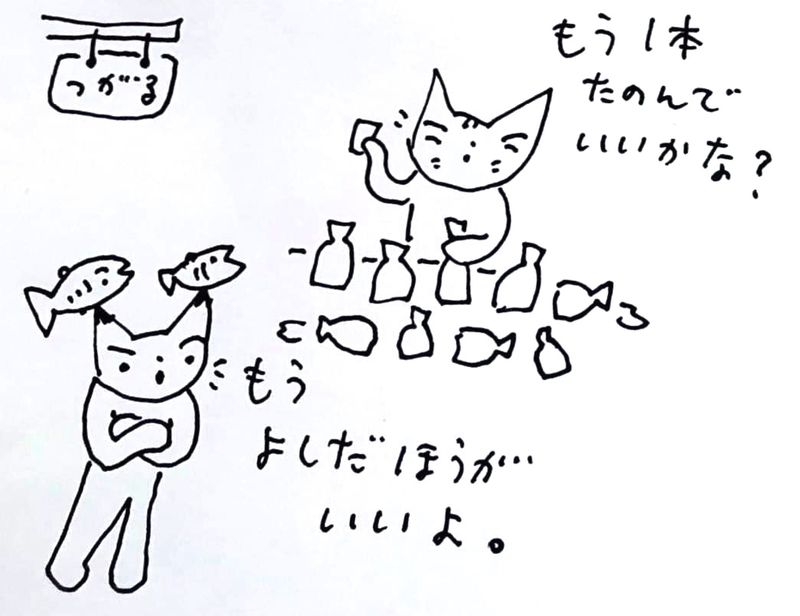 つがる
もう1本
たのんで
いいかな?
もう
よしだほうが…
いいよ。